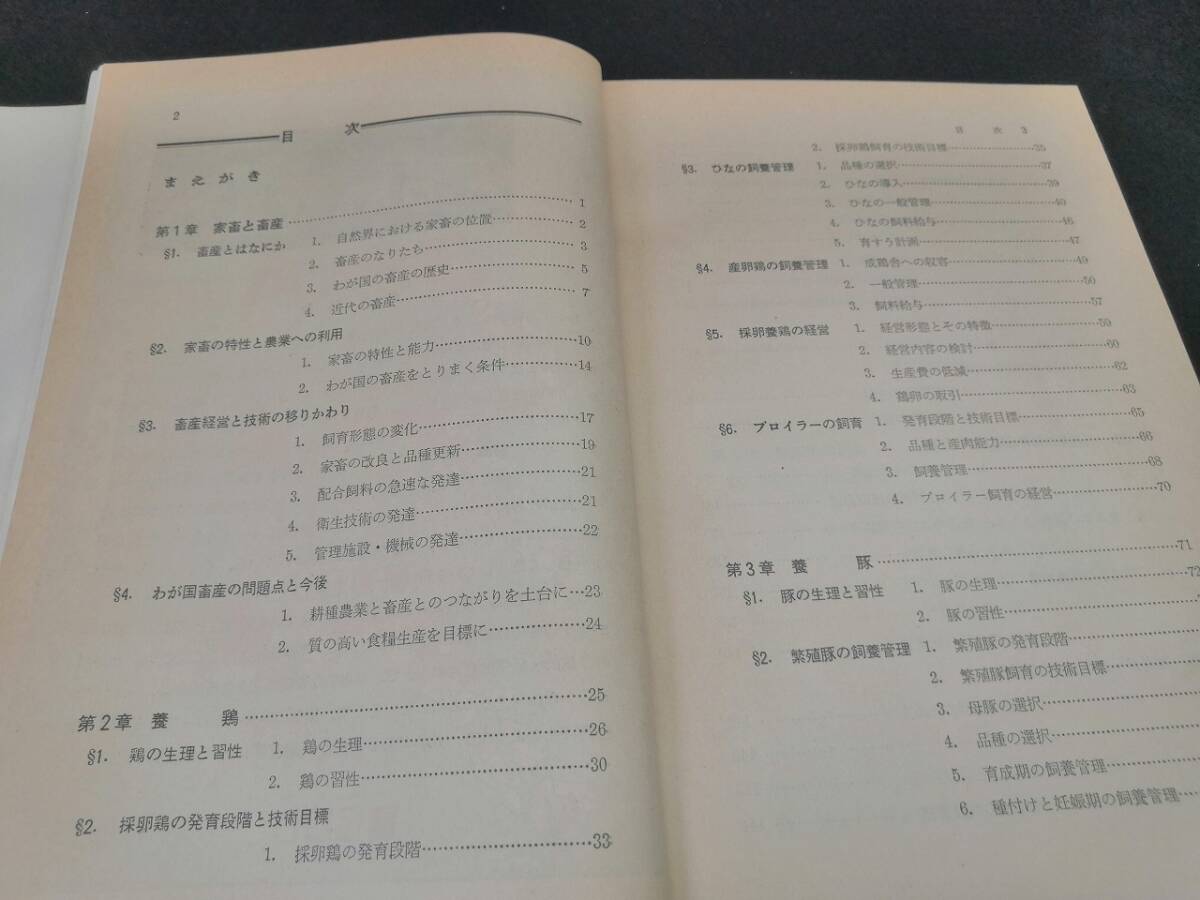 2
目次
まえがき
第1章 家畜と畜産……1
§1. 畜産とはなにか 1. 自然界における家畜の位置……2
2. 畜産のなりたち……3
3. わが国の畜産の歴史……5
4. 近代の畜産……7
§2. 家畜の特性と農業への利用
1. 家畜の特性と能力……10
2. わが国の畜産をとりまく条件……14
§3. 畜産経営と技術の移りかわり
1. 飼育形態の変化……17
2. 家畜の改良と品種更新……19
3. 配合飼料の急速な発達……21
4. 衛生技術の発達……21
5. 管理施設・機械の発達……22
§4. わが国畜産の問題点と今後
1. 耕種農業と畜産とのつながりを土台に…23
2. 質の高い食糧生産を目標に……24
第2章 養鶏……25
§1. 鶏の生理と習性 1. 鶏の生理……26
2. 鶏の習性……30
§2. 採卵鶏の発育段階と技術目標
1. 採卵鶏の発育段階……33
目次 3
2. 採卵鶏飼育の技術目標……35
§3. ひなの飼養管理 1. 品種の選択……37
2. ひなの導入……39
3. ひなの一般管理……40
4. ひなの飼料給与……46
5. 育すう計画……47
§4. 産卵鶏の飼養管理 1. 成鶏舎への収容……49
2. 一般管理……50
3. 飼料給与……57
§5. 採卵養鶏の経営 1. 経営形態とその特徴……59
2. 経営内容の検討……60
3. 生産費の低減……62
4. 鶏卵の取引……63
§6. ブロイラーの飼育 1. 発育段階と技術目標……65
2. 品種と産肉能力……66
3. 飼養管理……68
4. ブロイラー飼育の経営……70
第3章 養豚……71
§1. 豚の生理と習性 1. 豚の生理……72
2. 豚の習性……
§2. 繁殖豚の飼養管理 1. 繁殖豚の発育段階……
2. 繁殖豚飼育の技術目標……
3. 母豚の選択……
4. 品種の選択……
5. 育成期の飼養管理……
6. 種付けと妊娠期の飼養管理……